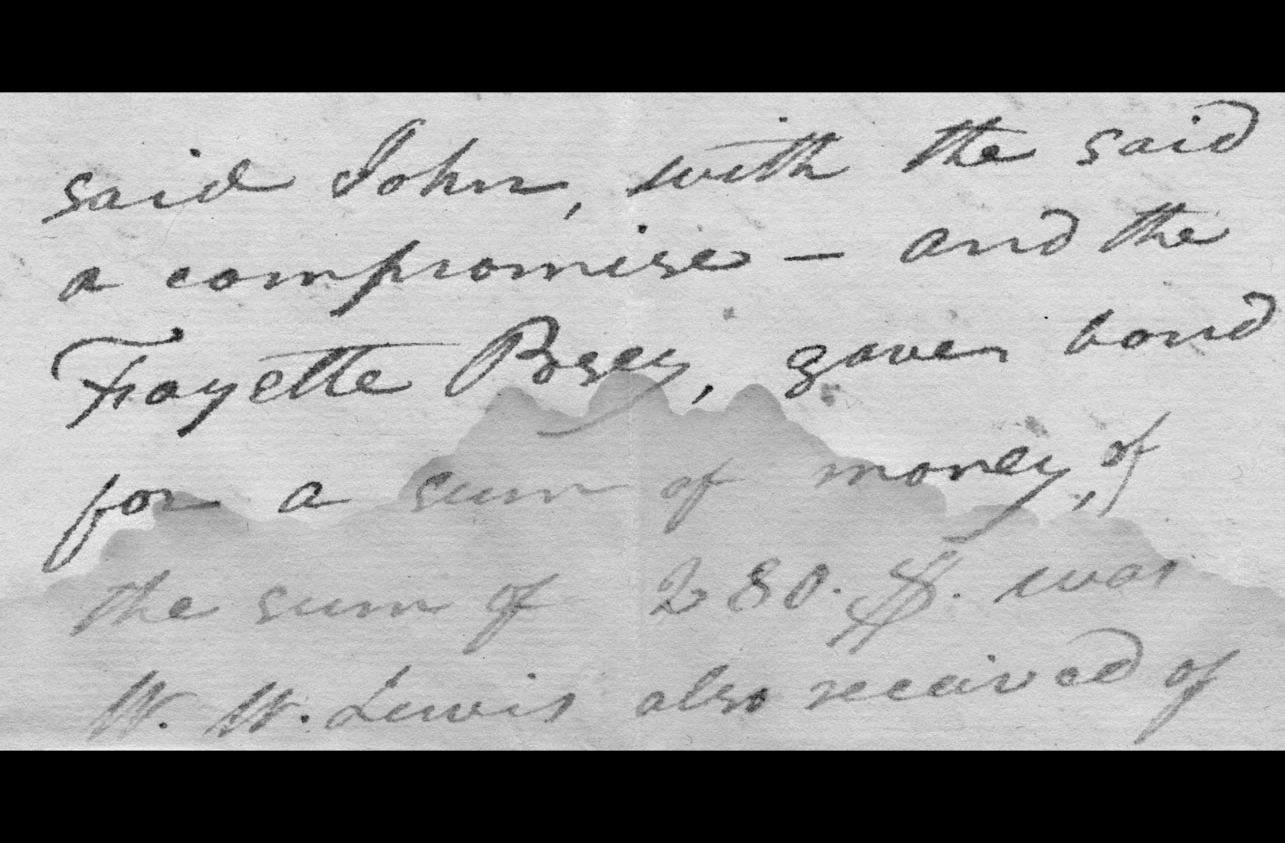 said John, with the said
a compromise — and the
Fayette Posey, gave bond
for a sum of money, of
the sum of 280.$. was
W. W. Lewis also received of